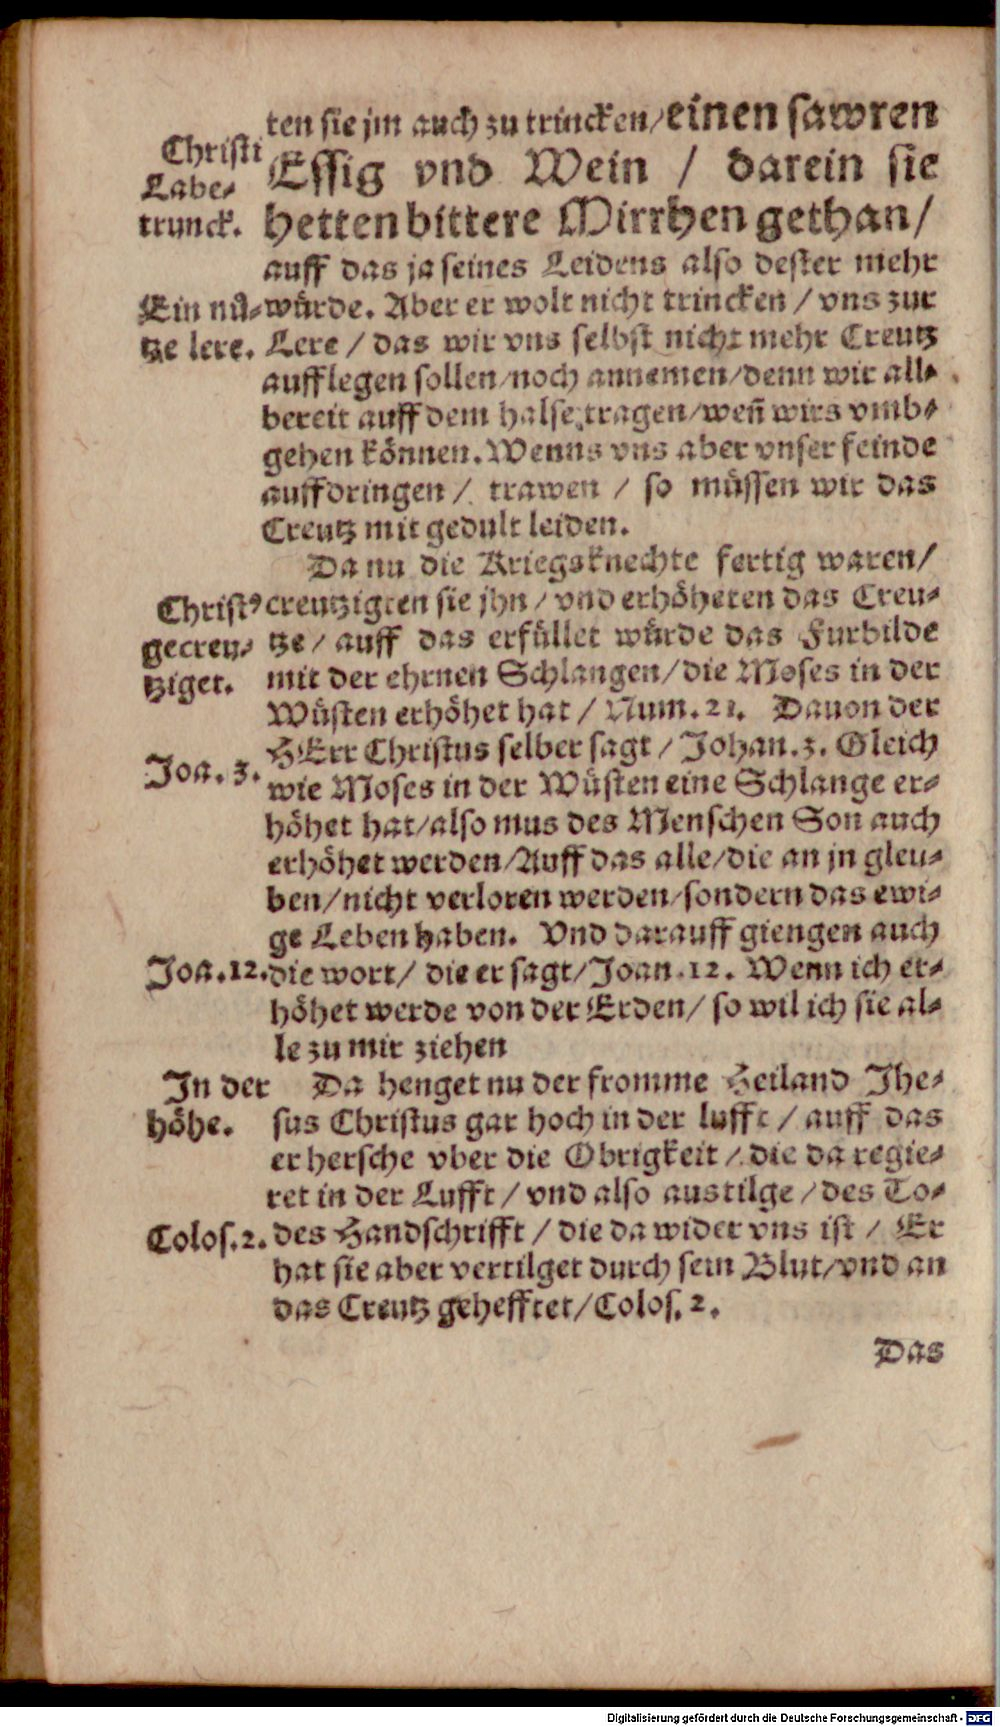 ten sie jm auch zu trincken/einen sawren
Christi
Labe-
trunck.
Essig vnd Wein / darein sie
hetten bittere Mirrhen gethan/
auff das ja seines Leidens also dester mehr
Ein nü-
tze lere.
würde. Aber er wolt nicht trincken / vns zur
Lere / das wir vns selbst nicht mehr Creutz
aufflegen sollen/noch annemen/denn wir all-
bereit auff dem halse tragen/weñ wirs vmb-
gehen können. Wenns vns aber vnser feinde
auffdringen / trawen / so müssen wir das
Creutz mit gedult leiden.
Da nu die Kriegsknechte fertig waren/
Christꝰ
gecreu-
tziget.
creutzigten sie jhn / vnd erhöheten das Creu-
tze / auff das erfüllet würde das Furbilde
mit der ehrnen Schlangen/die Moses in der
Wüsten erhöhet hat / Num. 21. Dauon der
Joa. 3.
HErr Christus selber sagt / Johan. 3. Gleich
wie Moses in der Wüsten eine Schlange er-
höhet hat/also mus des Menschen Son auch
erhöhet werden/Auff das alle/die an jn gleu-
ben/nicht verloren werden/sondern das ewi-
ge Leben haben. Vnd darauff giengen auch
Joa. 12.
die wort/ die er sagt/Joan. 12. Wenn ich er-
höhet werde von der Erden/ so wil ich sie al-
le zu mir ziehen
In der
höhe.
Da henget nu der fromme Heiland Jhe-
sus Christus gar hoch in der lufft / auff das
er hersche vber die Obrigkeit / die da regie-
ret in der Lufft / vnd also austilge / des To-
Colos. 2.
des Handschrifft / die da wider vns ist / Er
hat sie aber vertilget durch sein Blut/vnd an
das Creutz gehefftet/Colos. 2.
Das
Digitalisierung gefördert durch die Deutsche Forschungsgemeinschaft - DFG